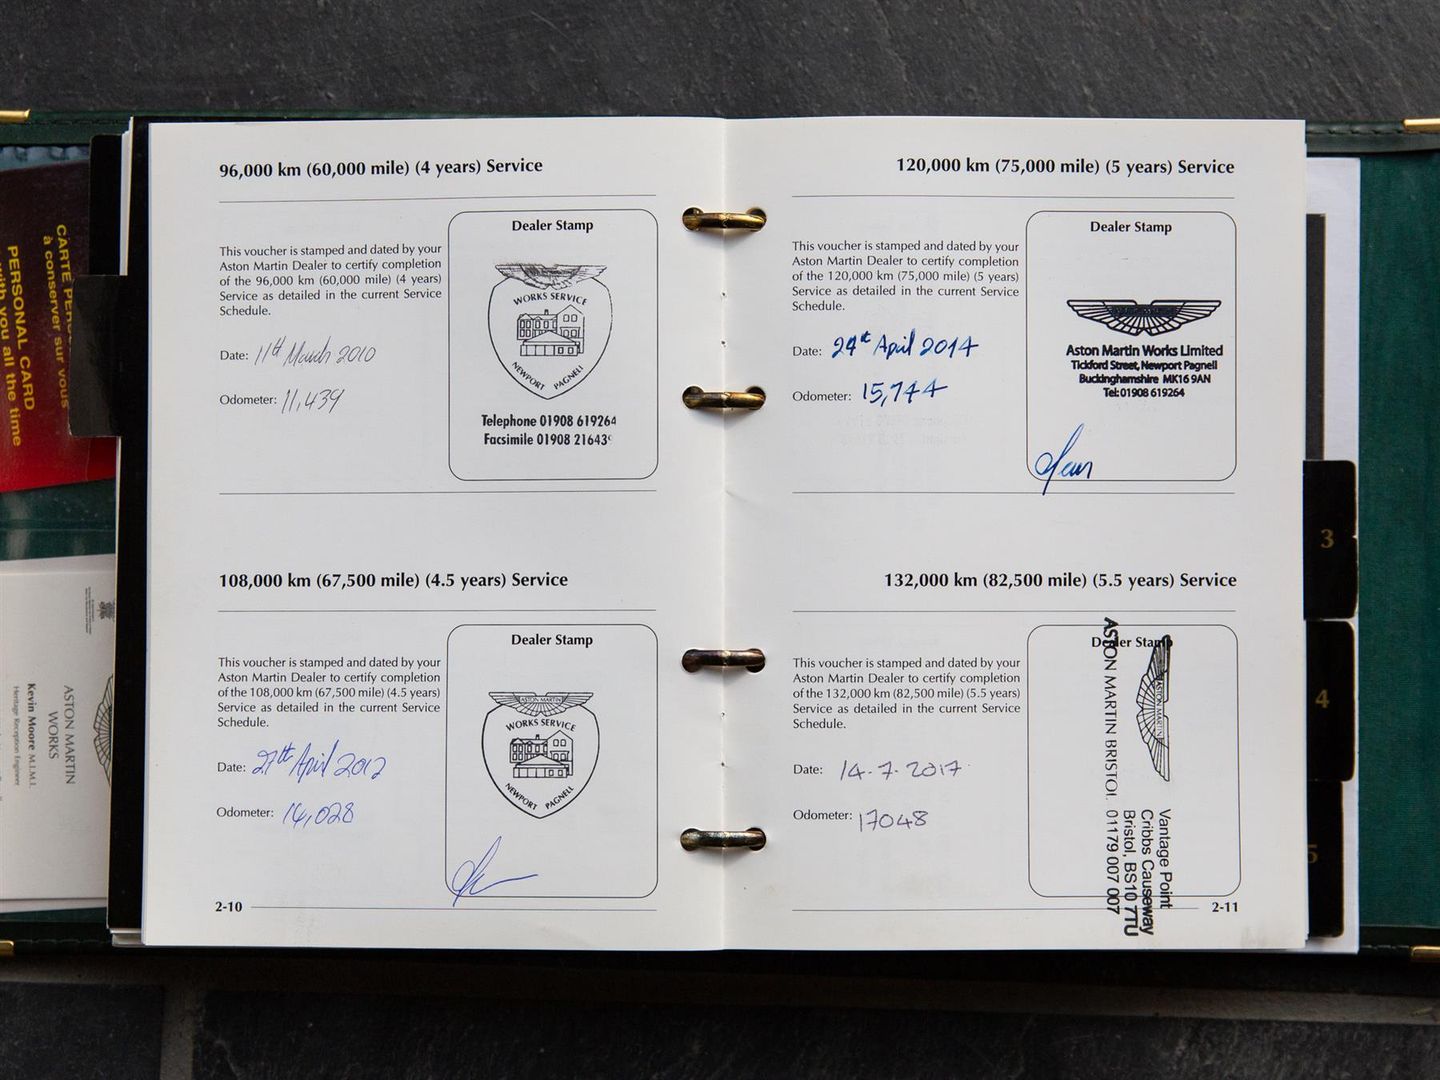 96,000 km (60,000 mile) (4 years) Service
This voucher is stamped and dated by your
Aston Martin Dealer to certify completion
of the 96,000 km (60,000 mile) (4 years)
Service as detailed in the current Service
Schedule.
Date: 11th March 2010
Odometer: 11,439
Dealer Stamp
WORKS SERVICE
NEWPORT PAGNELL
Telephone 01908 619264
Facsimile 01908 21643
108,000 km (67,500 mile) (4.5 years) Service
This voucher is stamped and dated by your
Aston Martin Dealer to certify completion
of the 108,000 km (67,500 mile) (4.5 years)
Service as detailed in the current Service
Schedule.
Date: 27th April 2012
Odometer: 14,028
Dealer Stamp
ASTON MARTIN
WORKS SERVICE
NEWPORT PAGNELL
2-10
120,000 km (75,000 mile) (5 years) Service
This voucher is stamped and dated by your
Aston Martin Dealer to certify completion
of the 120,000 km (75,000 mile) (5 years)
Service as detailed in the current Service
Schedule.
Date: 24th April 2014
Odometer: 15,744
Dealer Stamp
Aston Martin Works Limited
Tickford Street, Newport Pagnell
Buckinghamshire MK16 9AN
Tel: 01908 619264
132,000 km (82,500 mile) (5.5 years) Service
This voucher is stamped and dated by your
Aston Martin Dealer to certify completion
of the 132,000 km (82,500 mile) (5.5 years)
Service as detailed in the current Service
Schedule.
Date: 14.7.2017
Odometer: 17048
Dealer Stamp
ASTON MARTIN
Vantage Point
Cribbs Causeway
Bristol, BS10 7TU
ASTON MARTIN BRISTOL 01179 007 007
2-11
3
4
5
CARTE
à conserver sur vous
PERSONAL CARD
with you all the time
ASTON MARTIN
WORKS
Kevin Moore M.I.M.I.
Heritage Reception Engineer